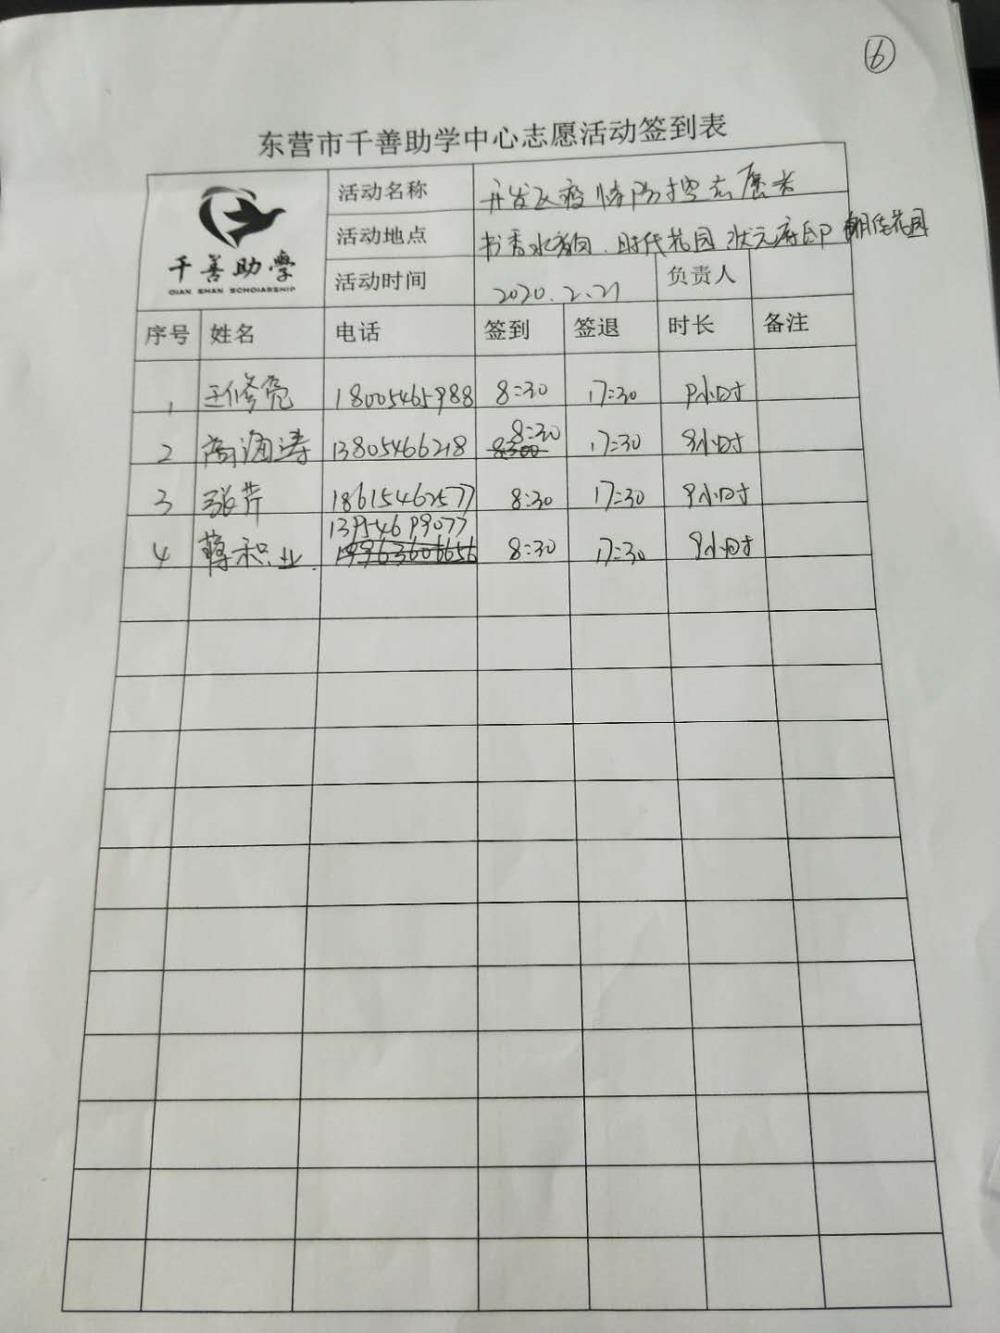 6
东营市千善助学中心志愿活动签到表
千善助学
QIAN SHAN SCHOLARSHIP
活动名称 开发区疫情防控志愿者
活动地点 书香水韵、时代花园 状元府邸 明佳花园
活动时间 2020.2.21 负责人
序号 姓名 电话 签到 签退 时长 备注
1 王修亮 18005465988 8:30 17:30 9小时
2 涛 13805466218 8:30 17:30 9小时
3 张芹 18615462577 8:30 17:30 9小时
13954699077
4 蒋积业 8:30 17:30 9小时